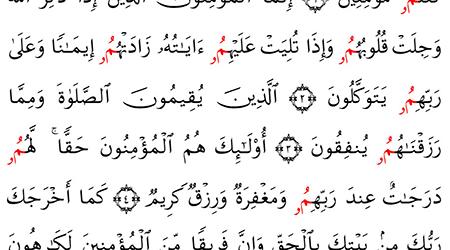 مُؤْمِنِينَ ﴿١﴾ إِنَّمَا ٱلْمُؤْمِنُونَ ٱلَّذِينَ إِذَا ذُكِرَ ٱللَّهُ
وَجِلَتْ قُلُوبُهُمُۥ وَإِذَا تُلِيَتْ عَلَيْهِمُۥ ءَايَٰتُهُۥ زَادَتْهُمُۥ إِيمَٰنًا وَعَلَىٰ
رَبِّهِمُۥ يَتَوَكَّلُونَ ﴿٢﴾ ٱلَّذِينَ يُقِيمُونَ ٱلصَّلَوٰةَ وَمِمَّا
رَزَقْنَٰهُمُۥ يُنفِقُونَ ﴿٣﴾ أُوْلَٰٓئِكَ هُمُ ٱلْمُؤْمِنُونَ حَقًّا ۚ لَّهُمُۥ
دَرَجَٰتٌ عِندَ رَبِّهِمُۥ وَمَغْفِرَةٌ وَرِزْقٌ كَرِيمٌ ﴿٤﴾ كَمَآ أَخْرَجَكَ
رَبُّكَ مِنۢ بَيْتِكَ بِٱلْحَقِّ وَإِنَّ فَرِيقًا مِّنَ ٱلْمُؤْمِنِينَ لَكَٰرِهُونَ